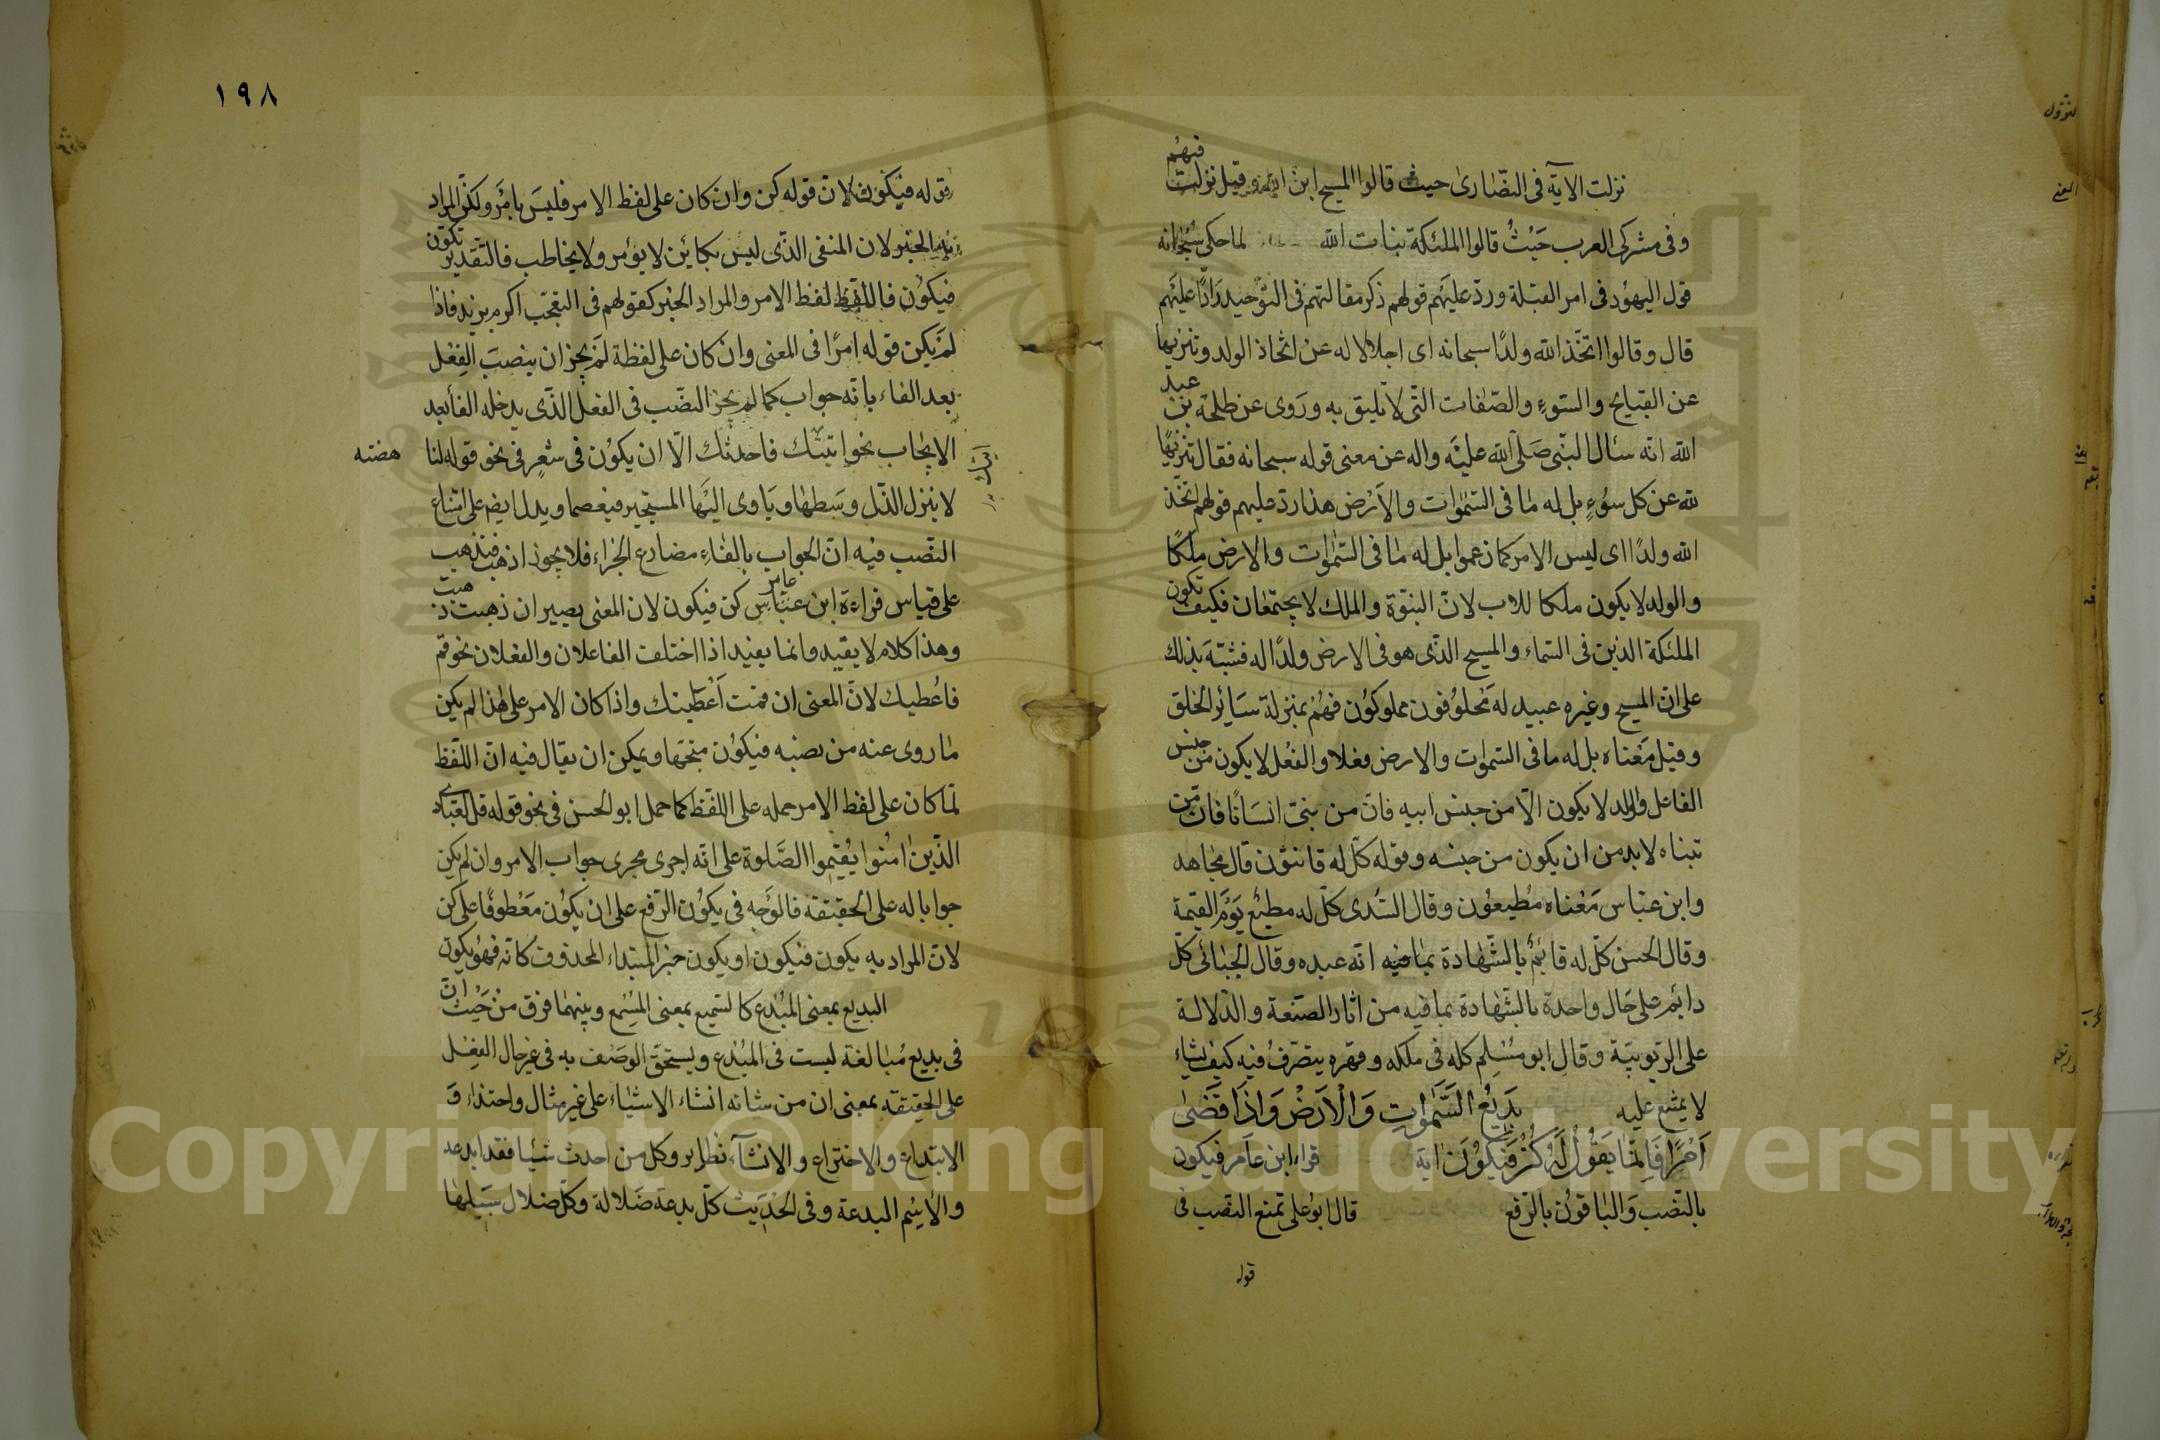 نزلت الآية فى النصّارى حيث قالوا المسيح ابن الله وقيل نزلت فيهم
وفى مشركى العرب حَيْثُ قالوا الملئكة بنات الله لما حكى سُبْحانه
قول اليهؤد فى امر القبلة وردّ عليَهم قولهم ذكر مقالتهم فى التوْحيد رَادًّا عليَهم
قال وقالوا اتخّذ الله ولدًا سبحانه اى اجلالا له عنْ اتخاذ الولد وتنزيها
عن القبايح والسّوءِ والصّفات التّى لا تليق به ورَوى عن طلحة بن عبيد
الله انّه سئال النبّى صَلّى الله عليْه واله عن معنى قوله سبحانه فقال تنزيهًا
لله عن كل سوُءٍ بل له مٰا فى السّمٰوات والاَرْض هذا ردّ عليهم قولهم اتخّذ
الله ولدًا اى ليس الامر كما زعموا بل له مٰا فى السّمٰوات والارض ملكًا
والولد لا يكون ملكا للاب لانّ البنوّة والملك لا يجتمعٰان فكيف تكون
الملئكة الذين فى السّماء والمسيح الذّى هو فى الارض ولدًا له فنبّه بذلك
على انّ المسيح وغيره عبيد له مَخلوُقون مملوكوُن فهُمْ بمنزلة سَائر الخلق
وقيل مَعْناه بل له ما فى السّموٰت والارض فعلا والفعْل لا يكون من جنس
الفاعل والولد لا يكون الاّ من جنس ابيه فانّ من تبنى انسَانًا فان من
تبناه لا بد من ان يكون من جنسه وقوله كلّ له قانتوُن قال مجٰاهد
وابن عبّاس مَعْناه مُطيعوُن وقال السُّدى كلّ له مطيعٌ يَوْم القيٰمة
وقال الحسن كلّ له قائمٌ بالشّهٰادة بما فيه انّه عبده وقال الجبٰائى كلّ
دائم على حَال واحدة بالشّهٰادة بما فيه من اثار الصّنعة والدّلالة
على الرّبوبيّة وقال ابو مسْلم كلّه فى ملكه وقهره يتصرّفُ فيه كيف يشاء
لا يمتنع عليه بَدِيعُ السَّمٰوٰتِ وَالْاَرْضِ وَاِذَا قَضٰى
اَمْرًا فَاِنَّمَا يَقُولُ لَهُ كُنْ فَيَكُونُ اية قراء ابن عامر فيكون
بالنّصْب وَالبٰاقوُن بالرّفع قال ابو على تمنع النصّب فى
قوله
١٩٨
قوله فيكوُن لانّ قوله كن وان كان على لفظ الامر فليسَ بامْر ولكن المراد
به الخبر لان المنفى الذّى ليس بكائن لا يؤمر ولا يخاطب فالتّقدير تكوّن
فيكوُن فاللفظ لفظ الامر والمراد الخبر كقولهم فى التعجّب اكرم بزيد فاذا
لمْ يكن قوله امرًا فى المعنى وان كان على لفظة لمْ يجز ان ينصبَ الفعْل
بعد الفاء بانّه جواب كما لم يجز النصّب فى الفعْل الذّى يدخله الفاء بعد
الايجٰاب نحو اتيتك فاحدثك الاّ ان يكوُن فى شعرٍ فى نحو قوله لنا هضبه
لا ينزل الذّل وسَطهٰا ويَاوى اليَها المستجير فيعصما ويدل ايضم على امتناع
النّصب فيه انّ الجواب بالفٰاءِ مضارع الجزاء فلا يجوز اذهب فتذهب
على قياس قراءة ابن عباس عامر كن فيكون لان المعنى يصير ان ذهبت ذهبت
وهذا كلام لا يفيد وانما يفيد اذا اختلفت الفاعلان والفعلان نحو قم
فاعُطيك لانّ المعنى ان قمت اَعْطَيتك واذا كان الامر على هٰذا لم يكن
مٰا روى عنه من نصبه فيكوُن متجهًا ويمكن ان يقال فيه انّ اللّفظ
لمّا كان على لفظ الامر حمله على اللّفظ كما حمل ابو الحسن فى نحو قوله قل لعبادى
الذّين اٰمنُوا يُقيْموا الصَّلوة على انّه اجرى مجرى جواب الامر وان لم يكن
جوابا له على الحقيقة فالوَجه فى يكوُن الرّفع على ان يكوُن مَعْطوفًا على كن
لانّ المراد به يكون فيكون او يكون خبر المبتداء المحذوف كانّه فهو يكون
البديع بمعنى المبْدع كالسّميع بمعنى المسْمع وبينهمٰا فرق منْ حَيْث انّ
فى بديع مُبٰالغة ليست فى المبْدع ويستحقّ الوصْف به فى غير حال الفعْل
على الحقيقة بمعنى ان من شانه انشاء الاشيٰاء على غير مثال واحتذاء وَ
الابتداع والاختراع والانشٰاء نظاير وكل من احدث شيئا فقد ابدعه
والاسْم البدعة وفى الحْديث كلّ بدعة ضلالة وكلّ ضلال سبيلهٰا